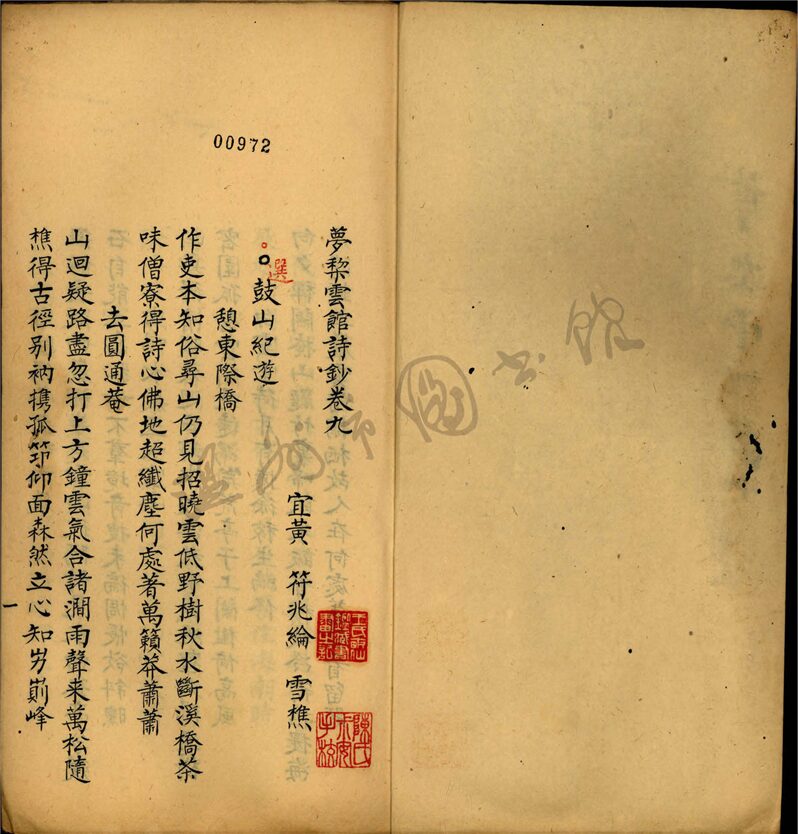 00972
夢棃雲館詩鈔卷九
宜黃 符兆綸 雪樵
選
鼓山紀遊
憩東際橋
作吏本知俗尋山仍見招曉雲低野樹秋水斷溪橋茶
味僧寮得詩心佛地超纖塵何處著萬籟莽蕭蕭
去圓通菴
山迴疑路盡忽打上方鐘雲氣合諸澗雨聲来萬松隨
樵得古徑别衲携孤筇仰面森然立心知屴崱峰
一